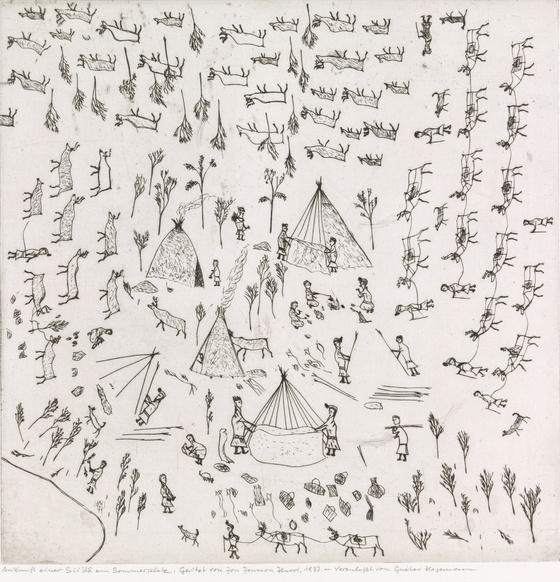 Ankunft einer Siida am Sommerplatz. Geritzt von Jon Jonsson 1937. – Veranlaßt von Gustav Hagemann